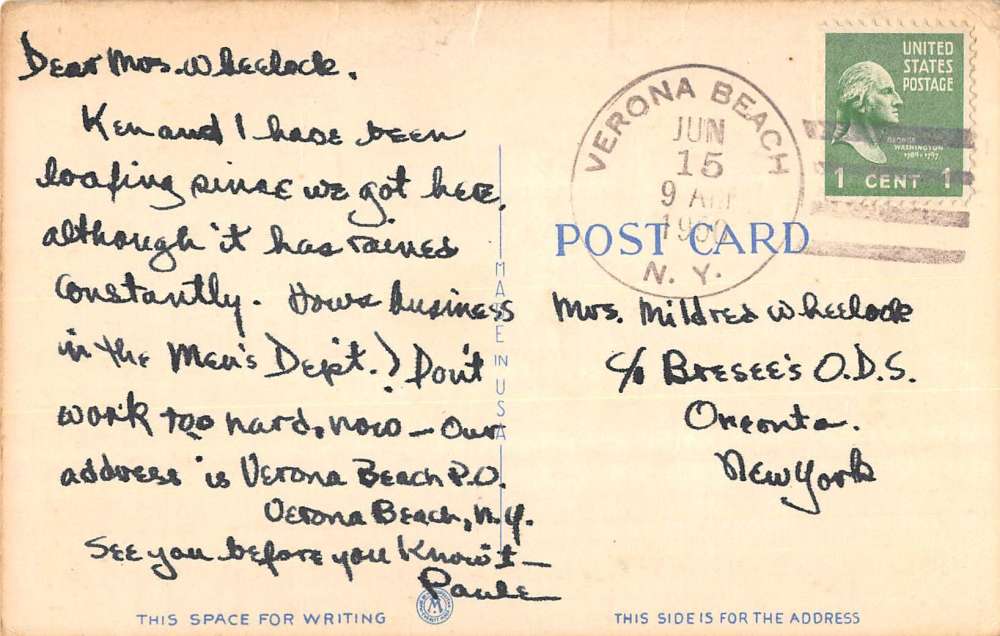 Dear Mrs. Wheelock.
Ken and I have been
loafing since we got here,
although it has rained
constantly. Hows business
in the Men's Dep't.? Don't
work too hard, now — Our
address is Verona Beach P.O.
Verona Beach, N.Y.
See you before you know it —
Paule
THIS SPACE FOR WRITING
MADE IN USA
M
VERONA BEACH
JUN
15
9 AM
N. Y.
UNITED
STATES
POSTAGE
GEORGE
WASHINGTON
1789-1797
1 CENT 1
POST CARD
Mrs. Mildred Wheelock
c/o Bresee's O.D.S.
Oneonta.
New York
THIS SIDE IS FOR THE ADDRESS